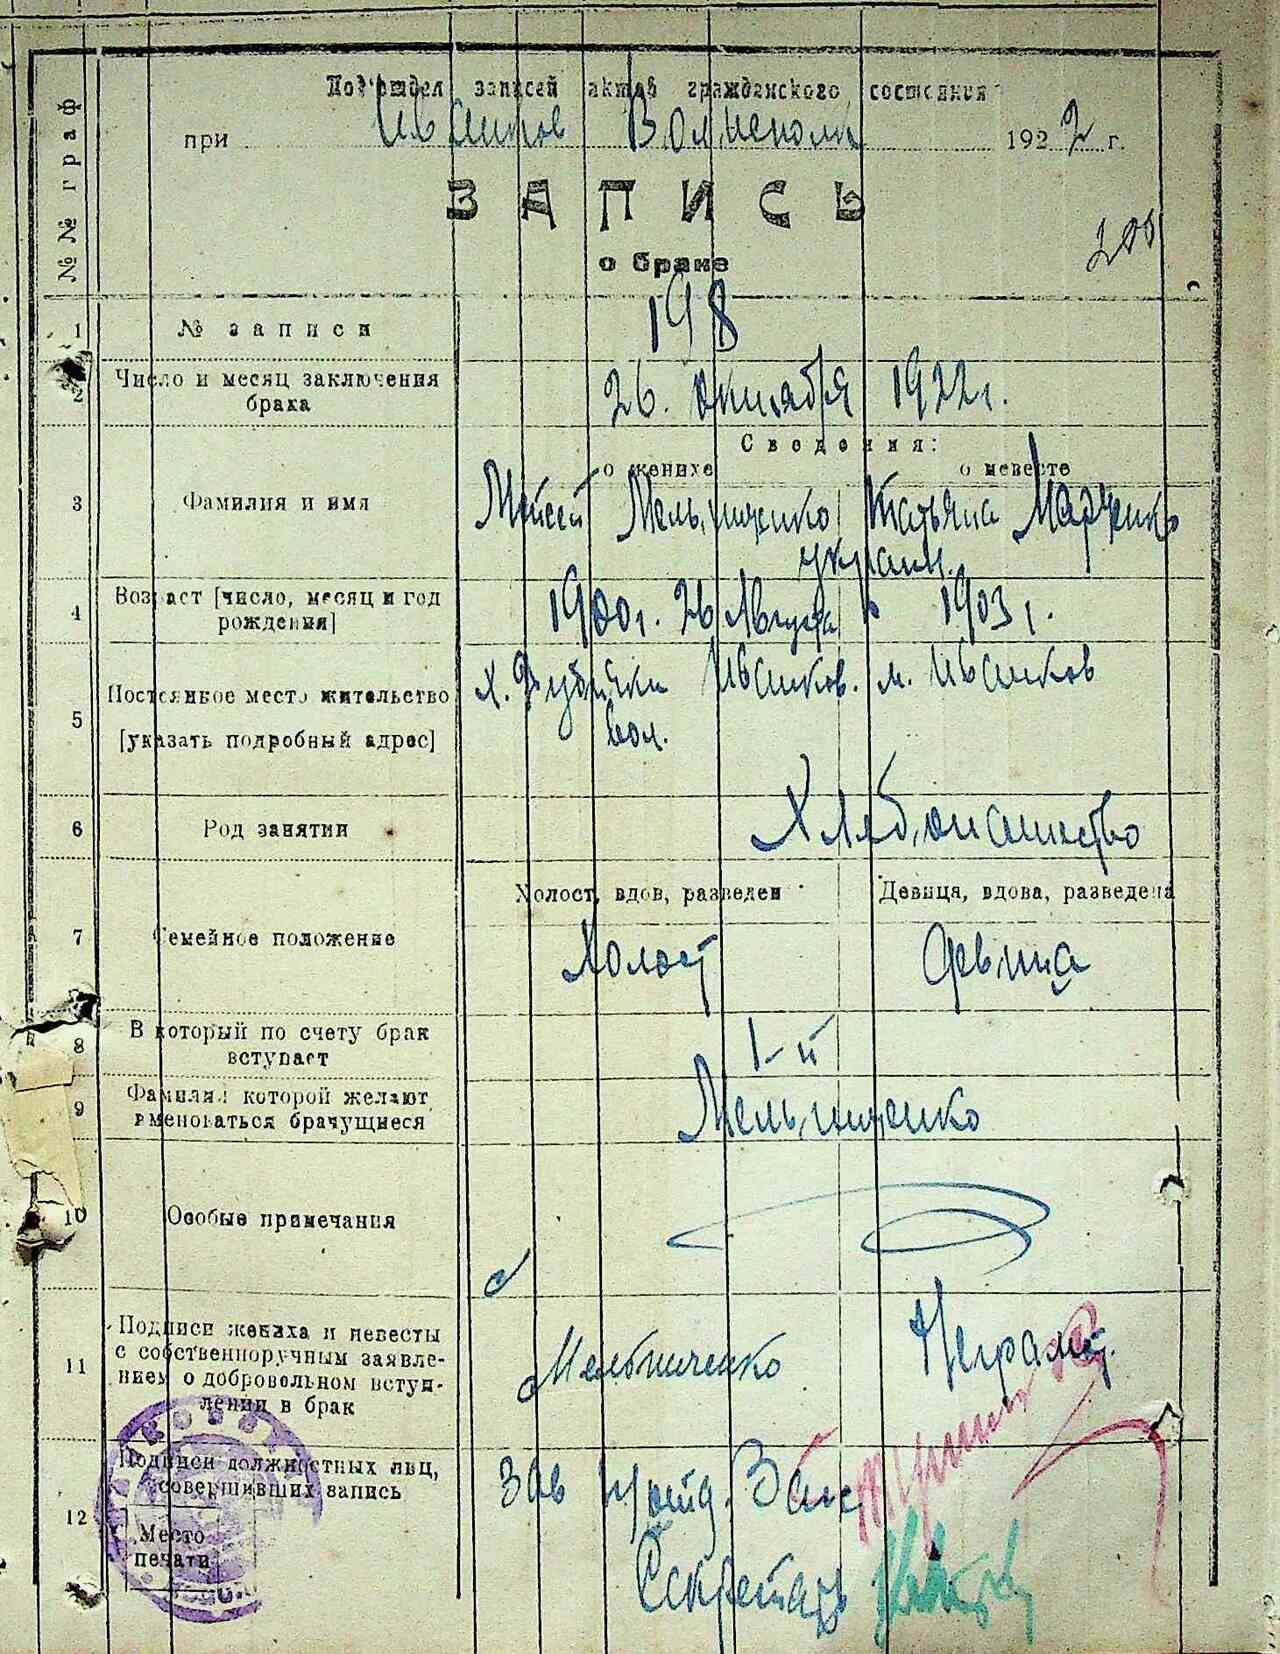 №№ граф
Под'отдел записей актов гражданского состояния
при Иванков Волисполк 1922 г.
ЗАПИСЬ
о браке
1 № записи 198
2 Число и месяц заключения брака 26. октября 1922 г.
Сведения:
о женихе о невесте
3 Фамилия и имя Мельниченко Татьяна Марченко
украин.
4 Возраст [число, месяц и год рождения] 1900 г. 26 Августа 1903 г.
5 Постоянное место жительство Иванков. м. Иванков
[указать подробный адрес] вол.
6 Род занятии Хлебопашество
Холост, вдов, разведен Девица, вдова, разведена
7 Семейное положение Холост девица
8 В который по счету брак вступает 1-й
9 Фамилия которой желают именоваться брачущиеся Мельниченко
10 Особые примечания
11 Подписи жениха и невесты с собственноручным заявлением о добровольном вступлении в брак Мельниченко Неграмот.
12 Подписи должностных лиц, совершивших запись Зав Загс
Место печати Секретарь